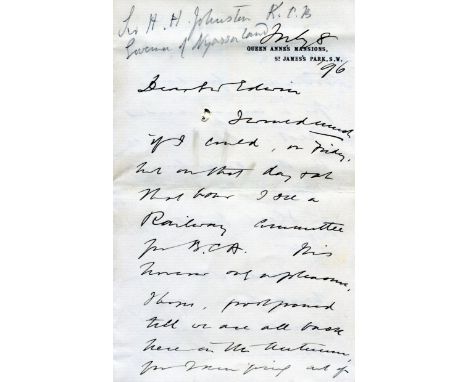 Sir H. H. Johnston K.C.B
Governor of Nyassaland
July 8
QUEEN ANNE'S MANSIONS,
ST JAMES'S PARK, S.W.
/96
Dear Sir Edwin
I would much
if I could, on Friday,
but on that day & at
that hour I see a
Railway Committee
for B.C.A. This
honour only a pleasure,
I hope, postponed
till we are all back
here in the Autumn,
for I am going